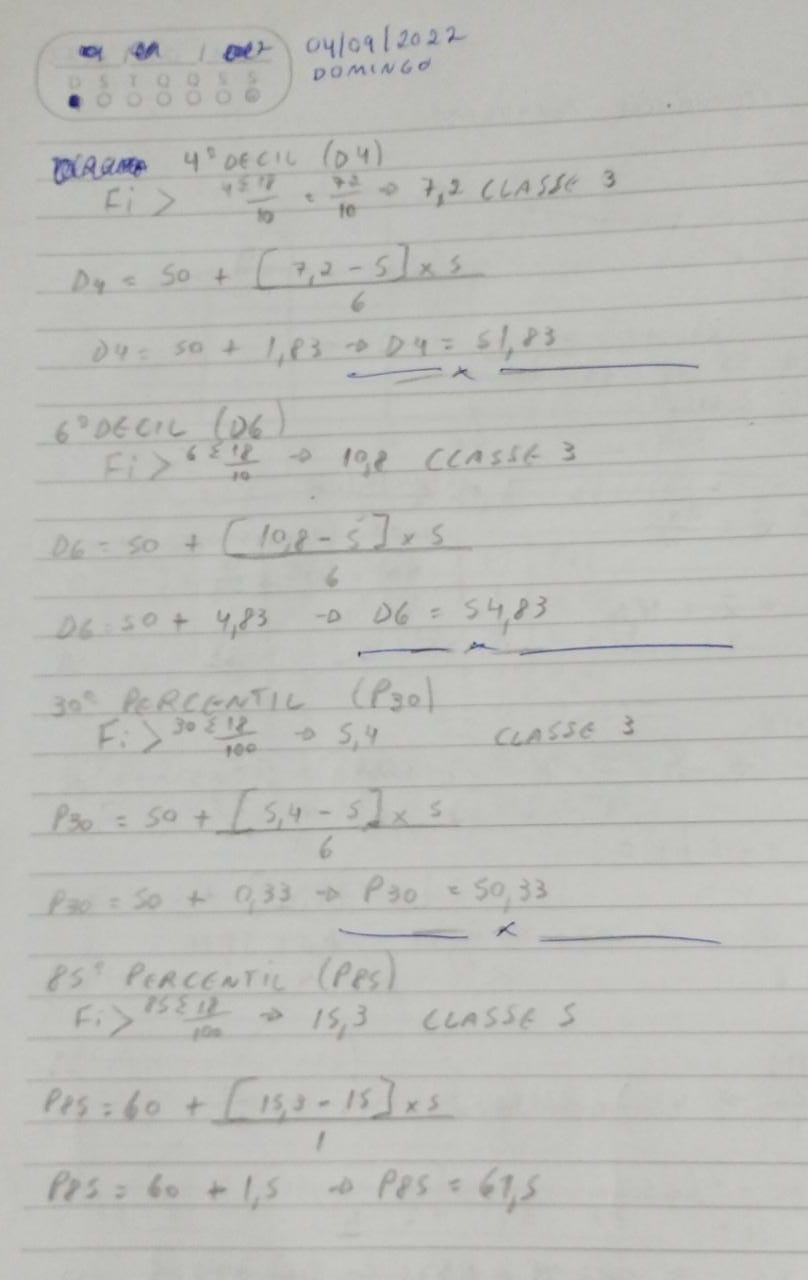 04/09/2022
DOMINGO
D S T Q Q S S
4º DECIL (D4)
Fi > 4Σ18/10 = 72/10 → 7,2 CLASSE 3
D4 = 50 + [7,2 - 5] x 5 / 6
D4 = 50 + 1,83 → D4 = 51,83
x
6º DECIL (D6)
Fi > 6Σ18/10 → 10,8 CLASSE 3
D6 = 50 + [10,8 - 5] x 5 / 6
D6 = 50 + 4,83 → D6 = 54,83
x
30º PERCENTIL (P30)
Fi > 30Σ18/100 → 5,4 CLASSE 3
P30 = 50 + [5,4 - 5] x 5 / 6
P30 = 50 + 0,33 → P30 = 50,33
x
85º PERCENTIL (P85)
Fi > 85Σ18/100 → 15,3 CLASSE 5
P85 = 60 + [15,3 - 15] x 5 / 1
P85 = 60 + 1,5 → P85 = 61,5